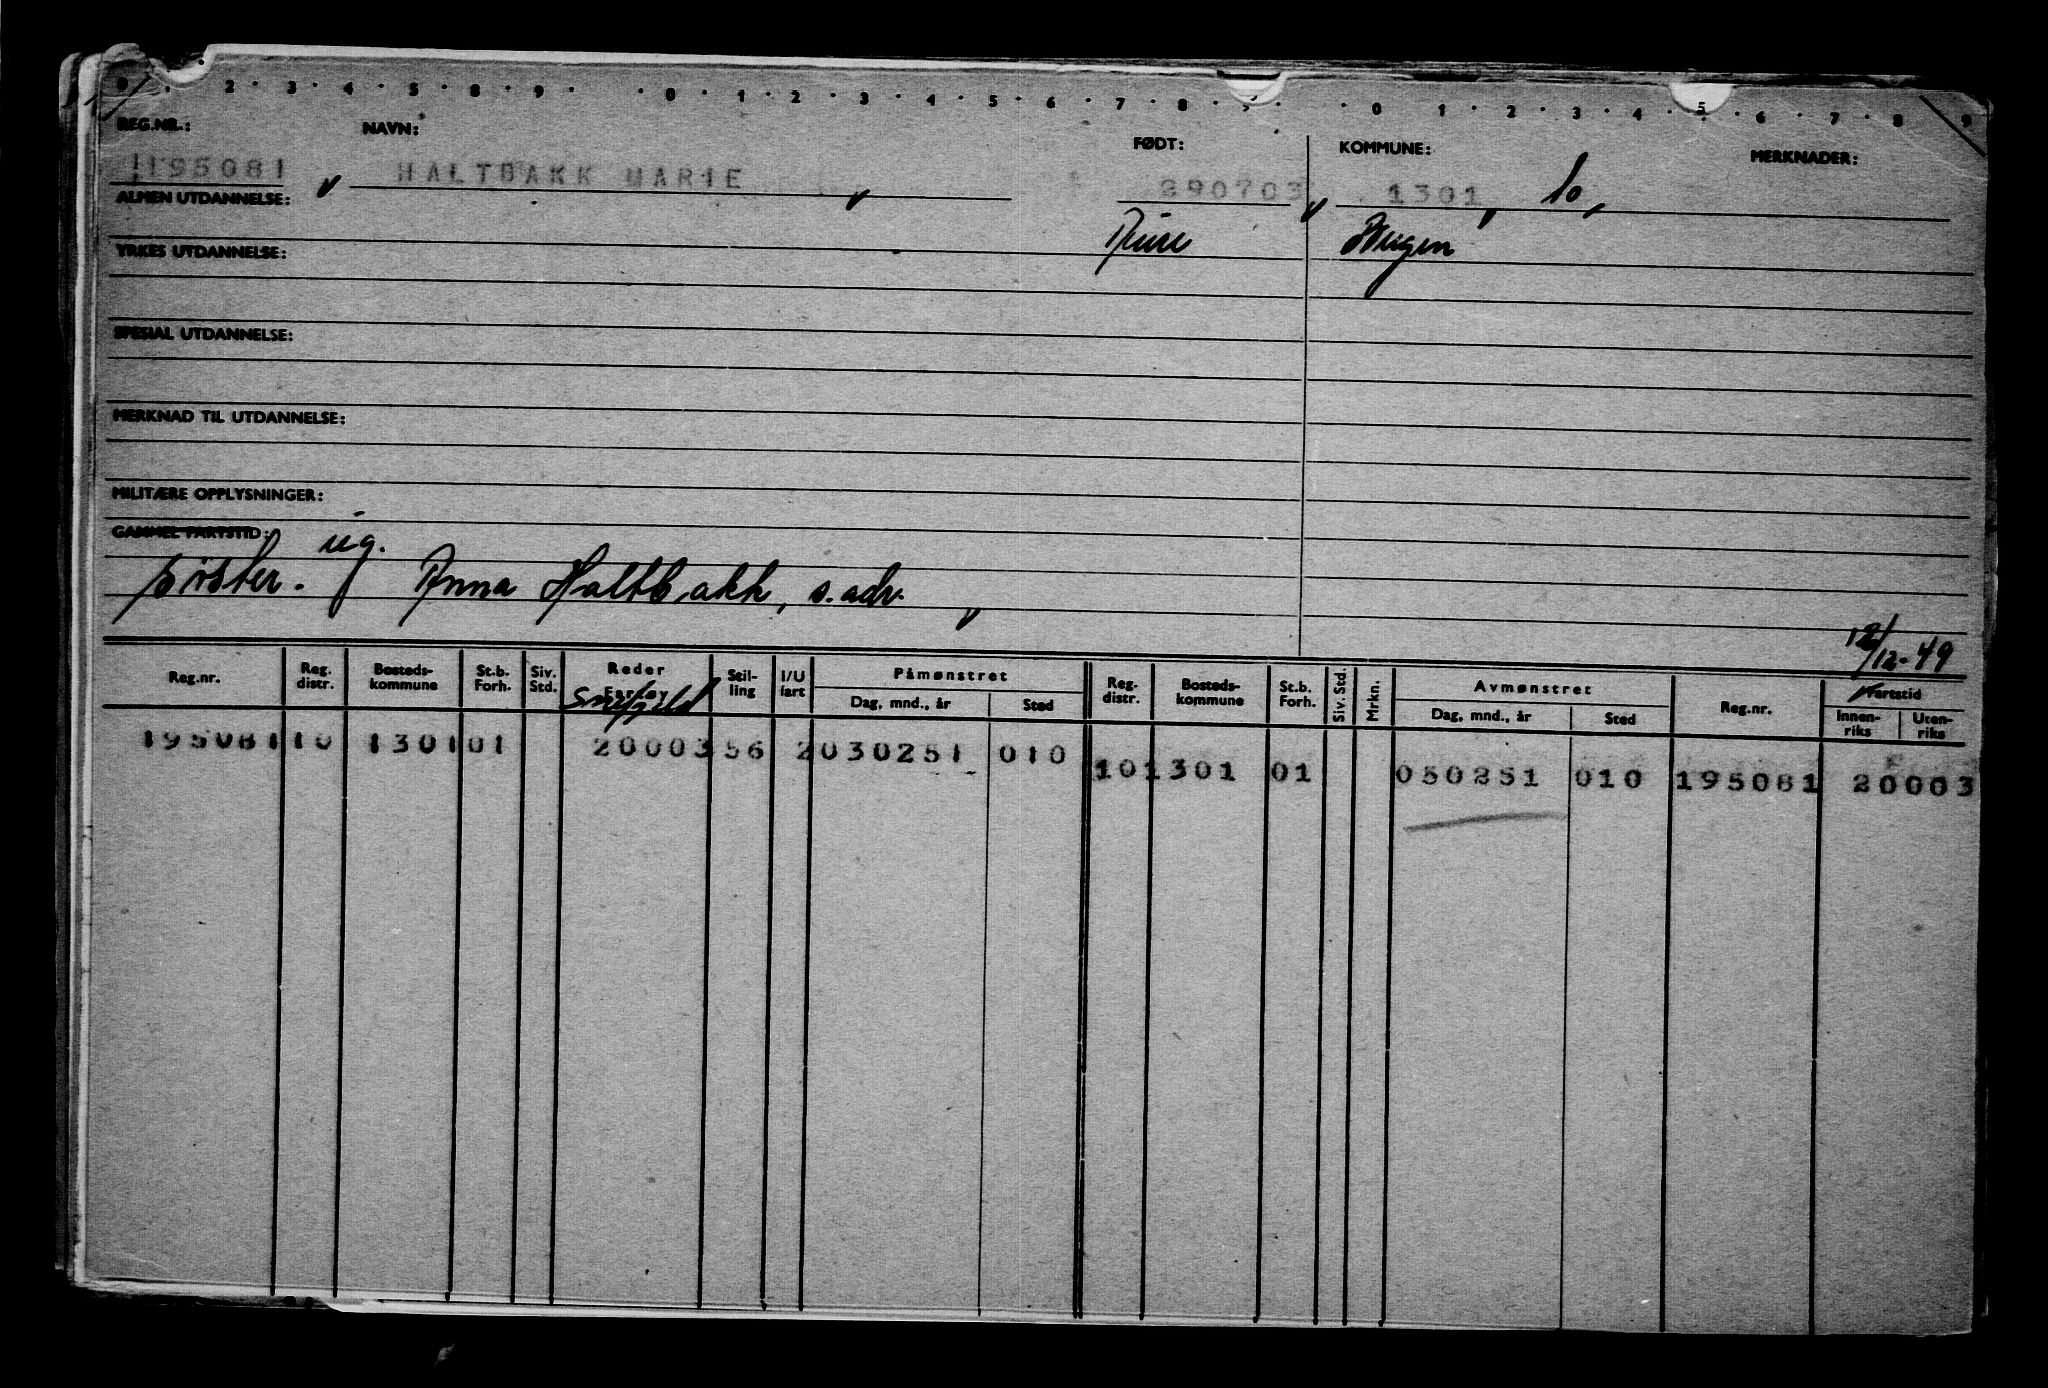 0 · 2 · 3 · 4 · 5 · 8 · 9 · 0 · 1 · 2 · 3 · 4 · 5 · 6 · 7 · 8 · 0 · 1 · 2 · 3 · 4 · 5 · 6 · 7 · 8 · 9
REG.NR.: NAVN: FØDT: KOMMUNE: MERKNADER:
195081 HALTBAKK MARIE 290703 1301, 10,
ALMEN UTDANNELSE:
YRKES UTDANNELSE:
SPESIAL UTDANNELSE:
MERKNAD TIL UTDANNELSE:
MILITÆRE OPPLYSNINGER:
GAMMEL FARTSTID:
ug.
søster. Anna Haltbakk, s. adr.
12/12-49
Reg.nr. Reg. distr. Bosteds-kommune St.b. Forh. Siv. Std. Reder Fartøy Stil-ling I/U fart Påmønstret Dag, mnd., år Sted Reg. distr. Bosteds-kommune St.b. Forh. Siv. Std. Mrkn. Avmønstret Dag, mnd., år Sted Reg.nr. Fartstid Innen-riks Uten-riks
195081 10 1301 01 20003 56 2 030251 010
10 1301 01 050251 010 195081 20003